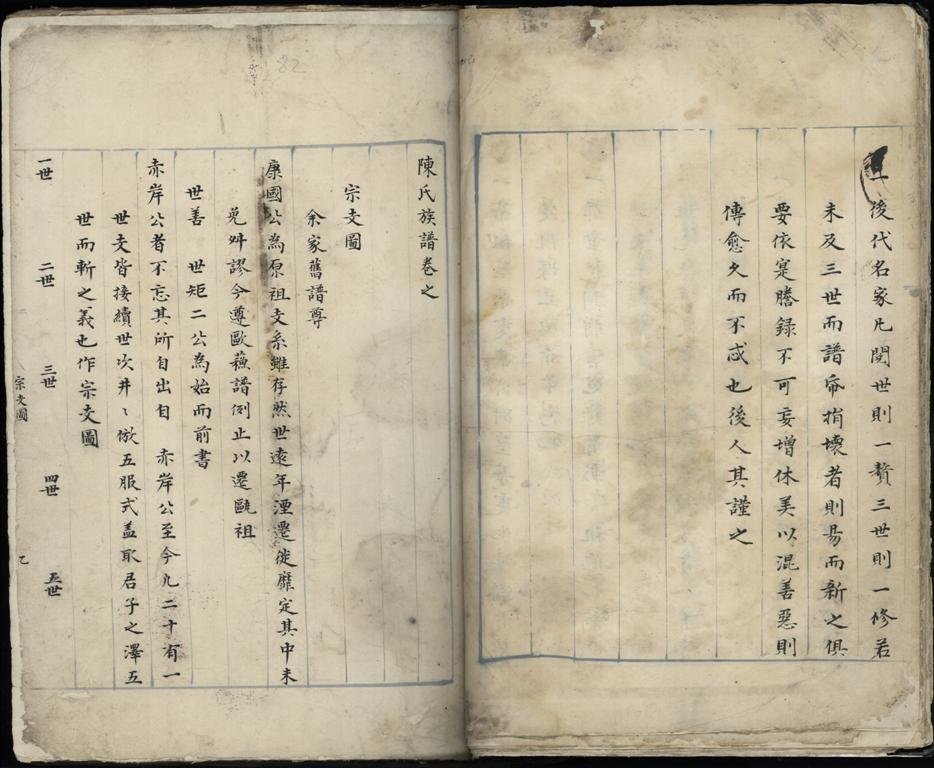 一後代名家凡閱世則一贅三世則一修若
未及三世而譜帋損壞者則易而新之俱
要依寔謄録不可妄增休美以混善惡則
傳愈久而不忒也後人其謹之
陳氏族譜卷之
宗支圖
余家舊譜尊
康國公為原祖支系雖存然世遠年湮遷徙靡定其中未
免舛謬今遵歐蘓譜例止以遷甌祖
世善 世矩二公為始而前書
赤岸公者不忘其所自出自 赤岸公至今凡二十有一
世支皆接續世次井〻倣五服式盖取君子之澤五
世而斬之義也作宗支圖
一世 二世 三世 四世 五世
宗支圖
82